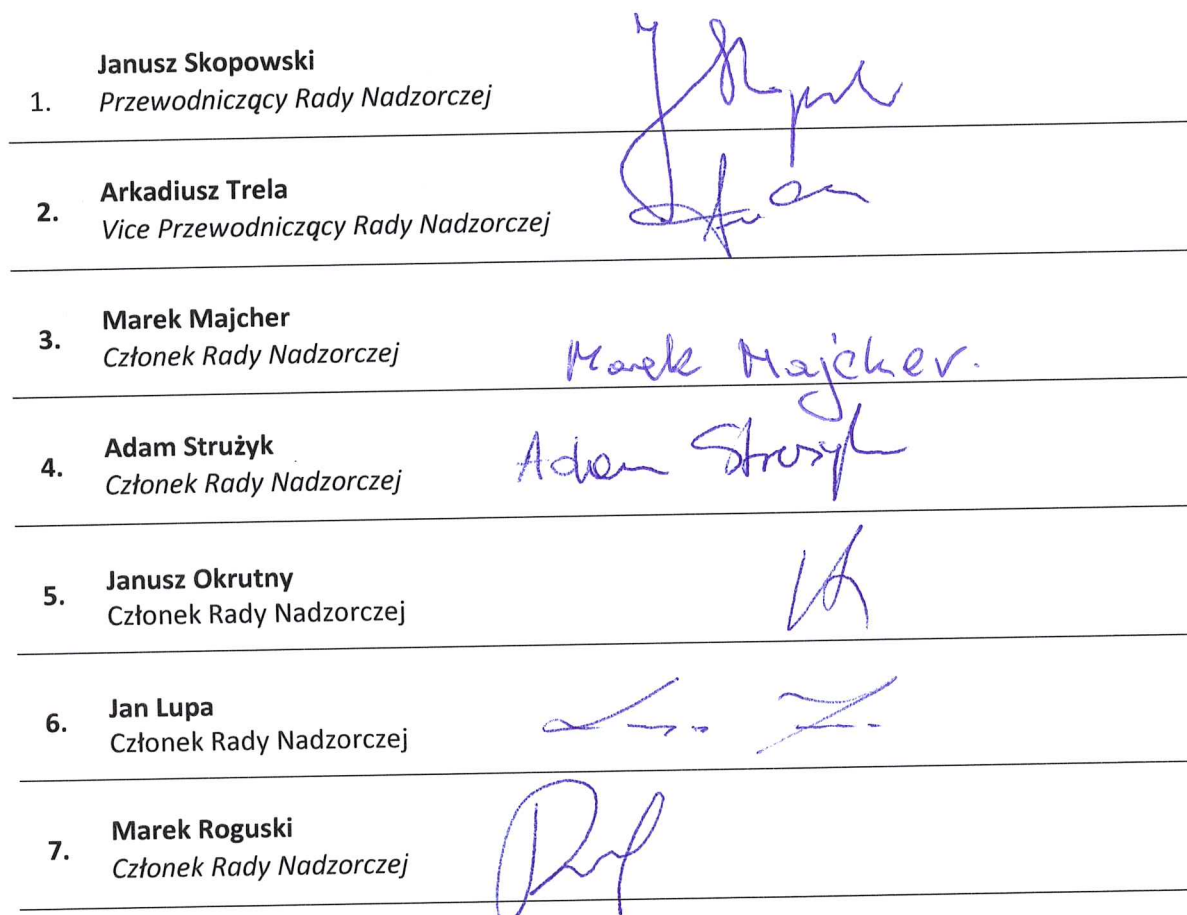 Janusz Skopowski
1. Przewodniczący Rady Nadzorczej
Arkadiusz Trela
2. Vice Przewodniczący Rady Nadzorczej
Marek Majcher
3. Członek Rady Nadzorczej
Marek Majcher.
Adam Strużyk
4. Członek Rady Nadzorczej
Adam Strużyk
Janusz Okrutny
5. Członek Rady Nadzorczej
Jan Lupa
6. Członek Rady Nadzorczej
Marek Roguski
7. Członek Rady Nadzorczej